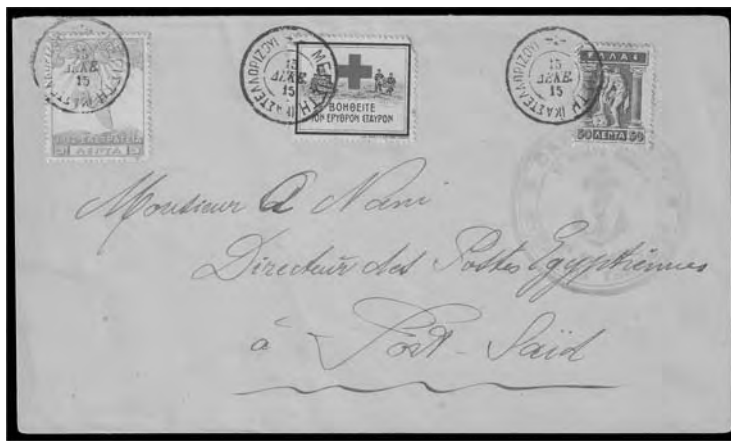 ΜΕΓΙΣΤΗ (ΚΑΣΤΕΛΛΟΡΙΖΟΥ)
15
ΔΕΚΕ
15
5 ΛΕΠΤΑ 5
ΜΕΓΙΣΤΗ (ΚΑΣΤΕΛΛΟΡΙΖΟΥ)
15
ΔΕΚΕ
15
ΒΟΗΘΕΙΤΕ
ΤΟΝ ΕΡΥΘΡΟΝ ΣΤΑΥΡΟΝ
ΜΕΓΙΣΤΗ (ΚΑΣΤΕΛΛΟΡΙΖΟΥ)
15
ΔΕΚΕ
15
ΕΛΛΑΣ
50 ΛΕΠΤΑ 50
Monsieur A Nani
Directeur des Postes Egyptiennes
à Port-Saïd